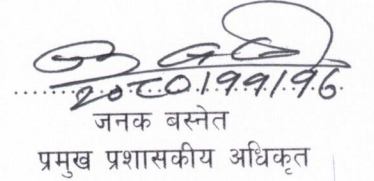 २०८०।११।१६
जनक बस्नेत
प्रमुख प्रशासकीय अधिकृत